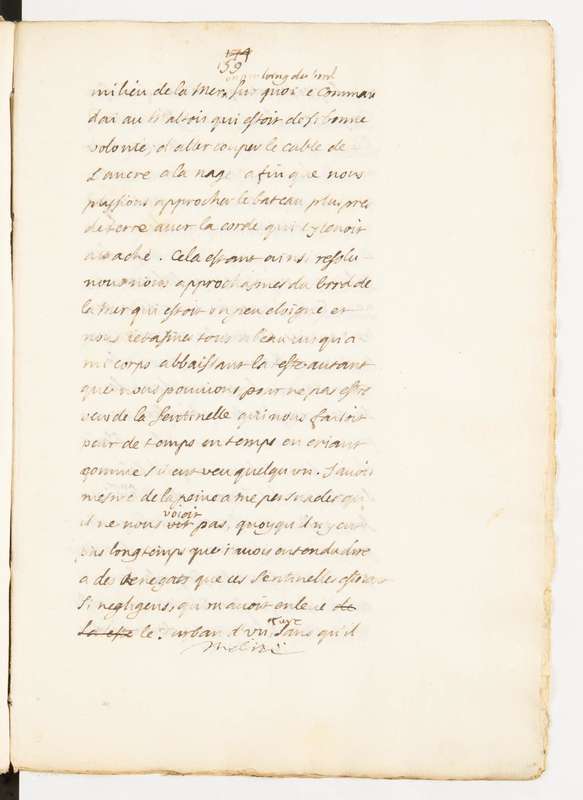 159
milieu de la mer, sur quoi je comman
dai au Maltois qui estoit de si bonne
volonté, d'aller couper le cable de
L'ancre a la nage afin que nous
pussions approcher le bateau plus pres
de terre avec la corde qui y tenoit
attaché. Cela estant ainsi resolu
nous nous approchames du bord de
la mer qui estoit un peu eloigné et
nous tous a l'eau jusqu'a
mi corps abbaissant la teste autant
que nous pouvions pour ne pas estre
veus de la sentinelle qui nous faisoit
peur de temps en temps en criant
comme s'il eut veu quelqu'un. J'avois
mesme de la peine a me persuader qu
il ne nous voioit pas, quoy qu'il n'y eut
pas longtemps que j'avois entendu dire
a des Renegats que ces sentinelles estoient
si negligens, qu'on avoit enlevé de
la teste le Turban d'un, sans qu'il